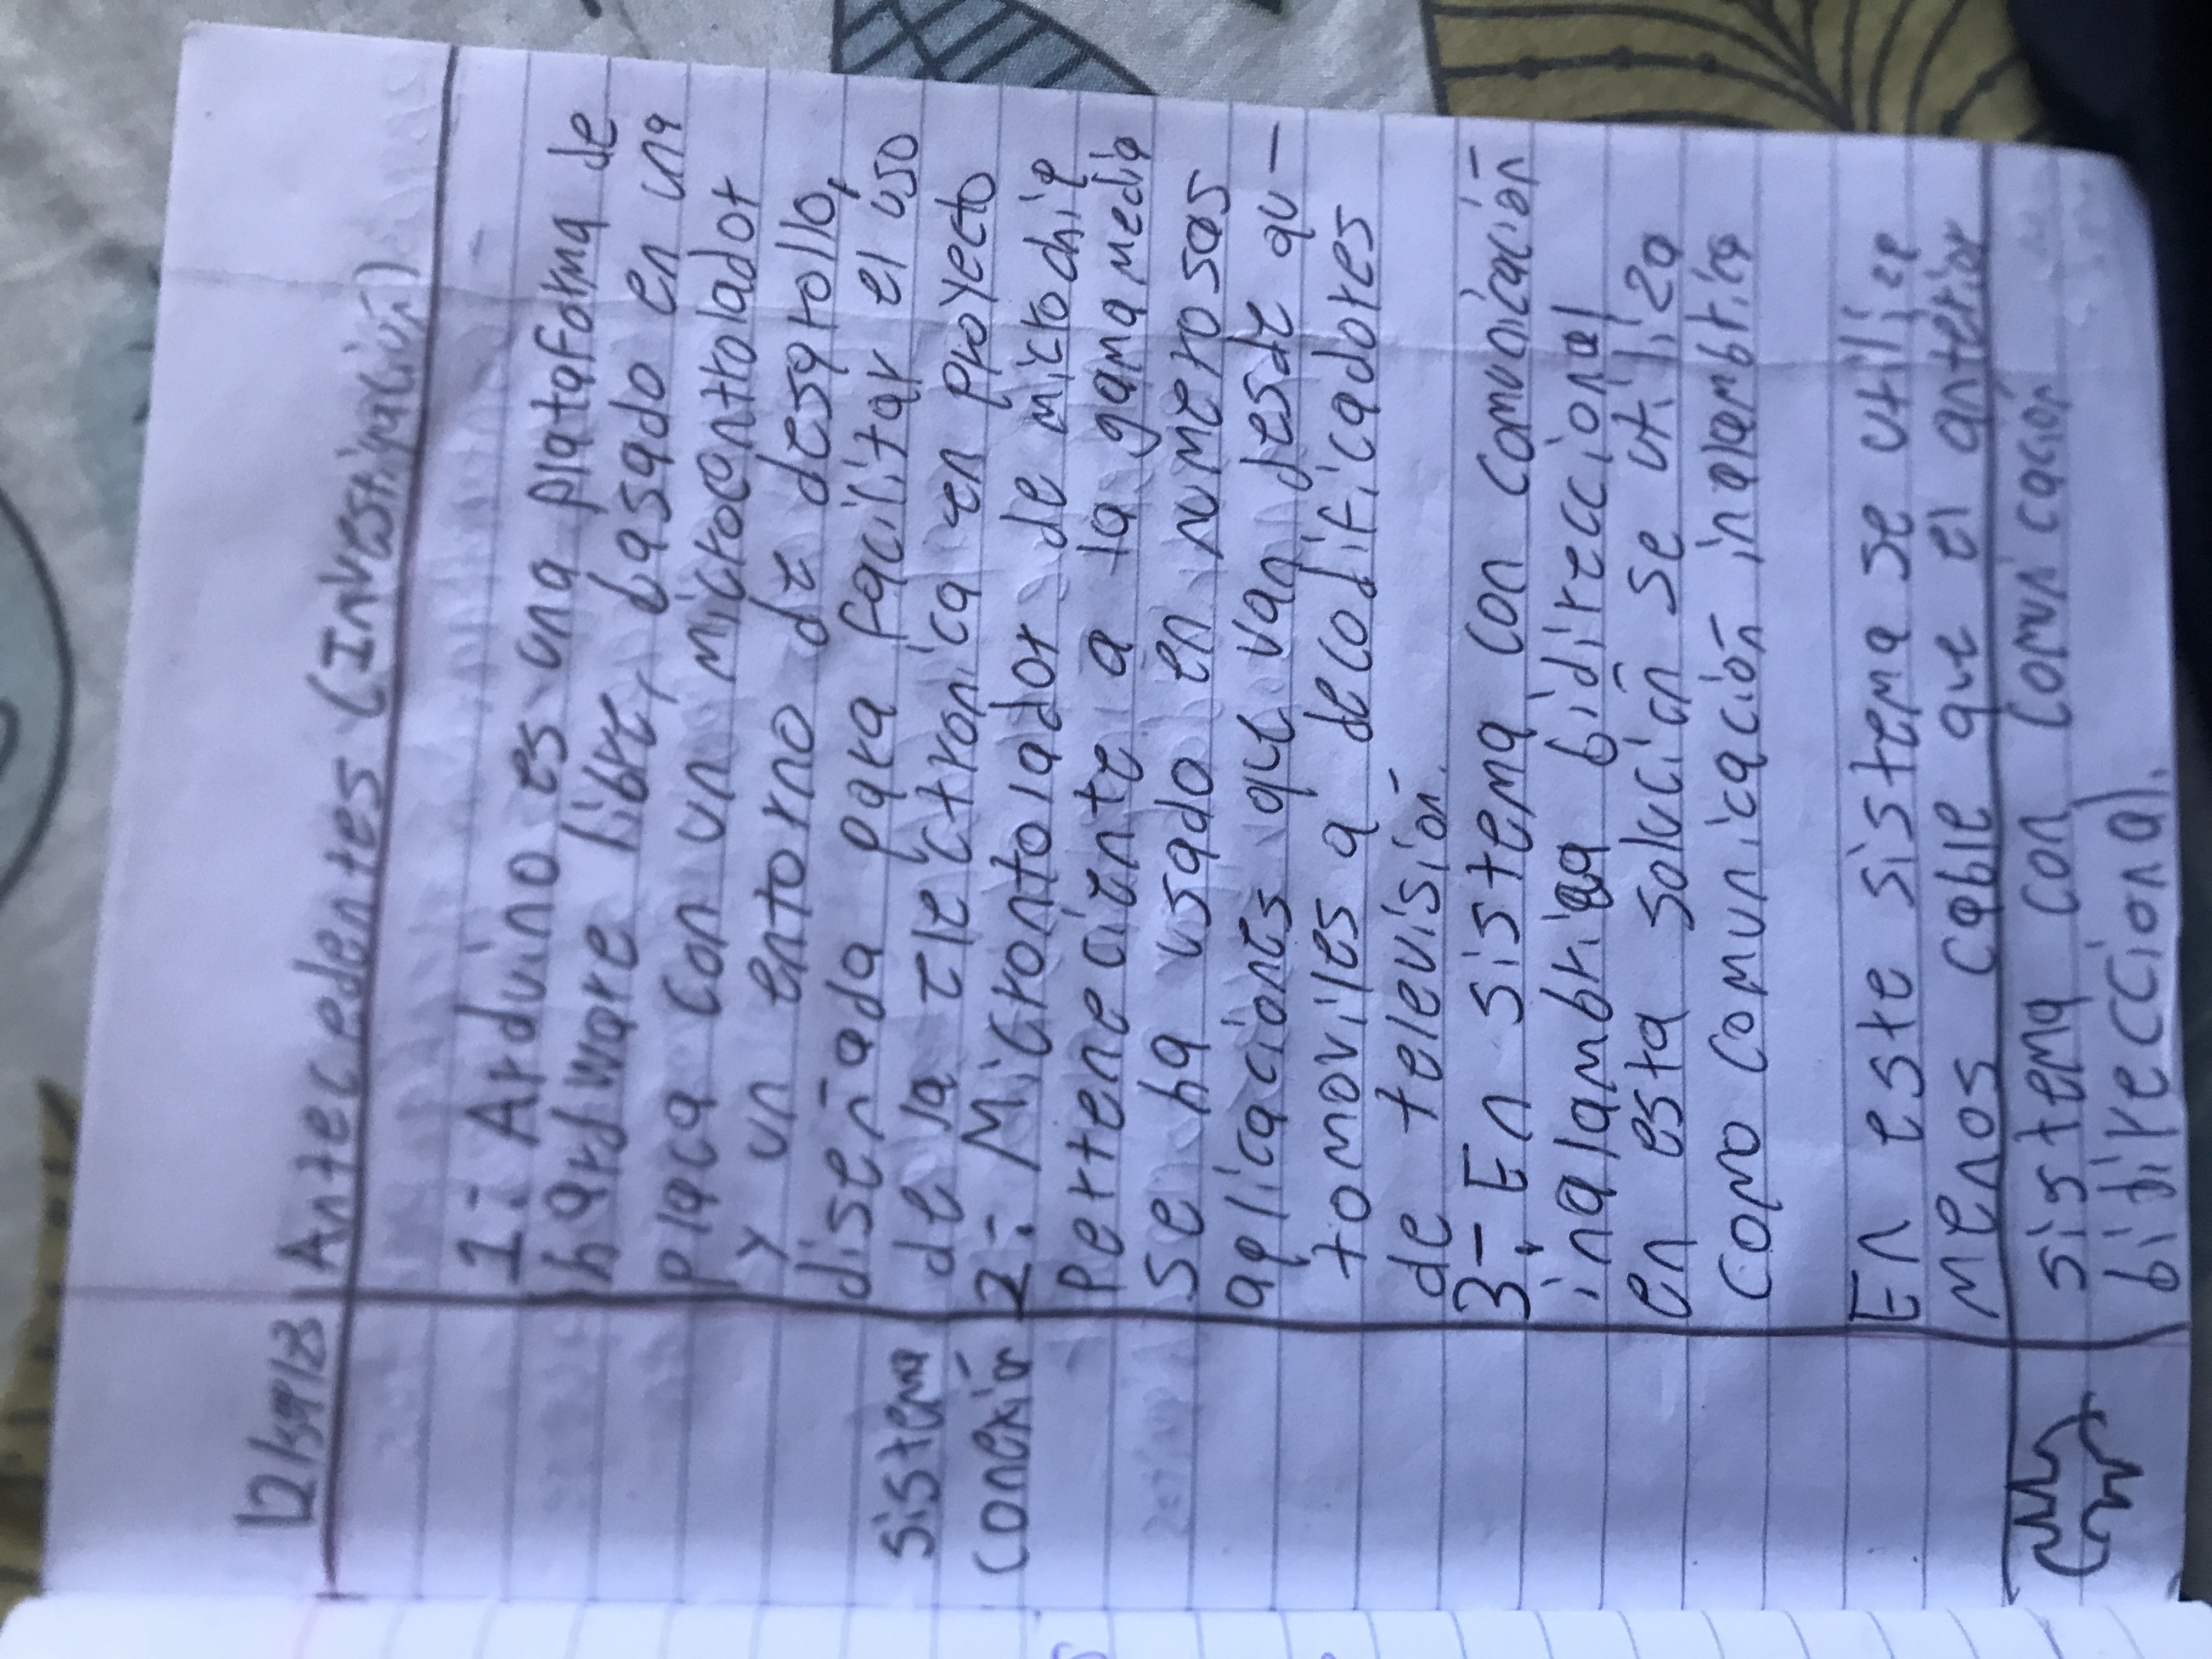 Antecedentes (Investigación)
1- Arduino es una plataforma de
hardware libre, basado en una
placa con un microcontrolador
y un entorno de desarrollo,
diseñada para facilitar el uso
de la electronica en proyecto
2- Microntolador de microchip
Perteneciente a la gama media
se ha usado en numerosas
aplicaciones que van desde au-
tomoviles a decodificadores
de televisión.
3- En sistema con comunicación
inalambrica bidireccional
en esta solución se utiliza
como comunicación inalambrica
En este sistema se utilize
menos cable que el anterior
sistema con comunicación
bidireccional.
sistema
conexión